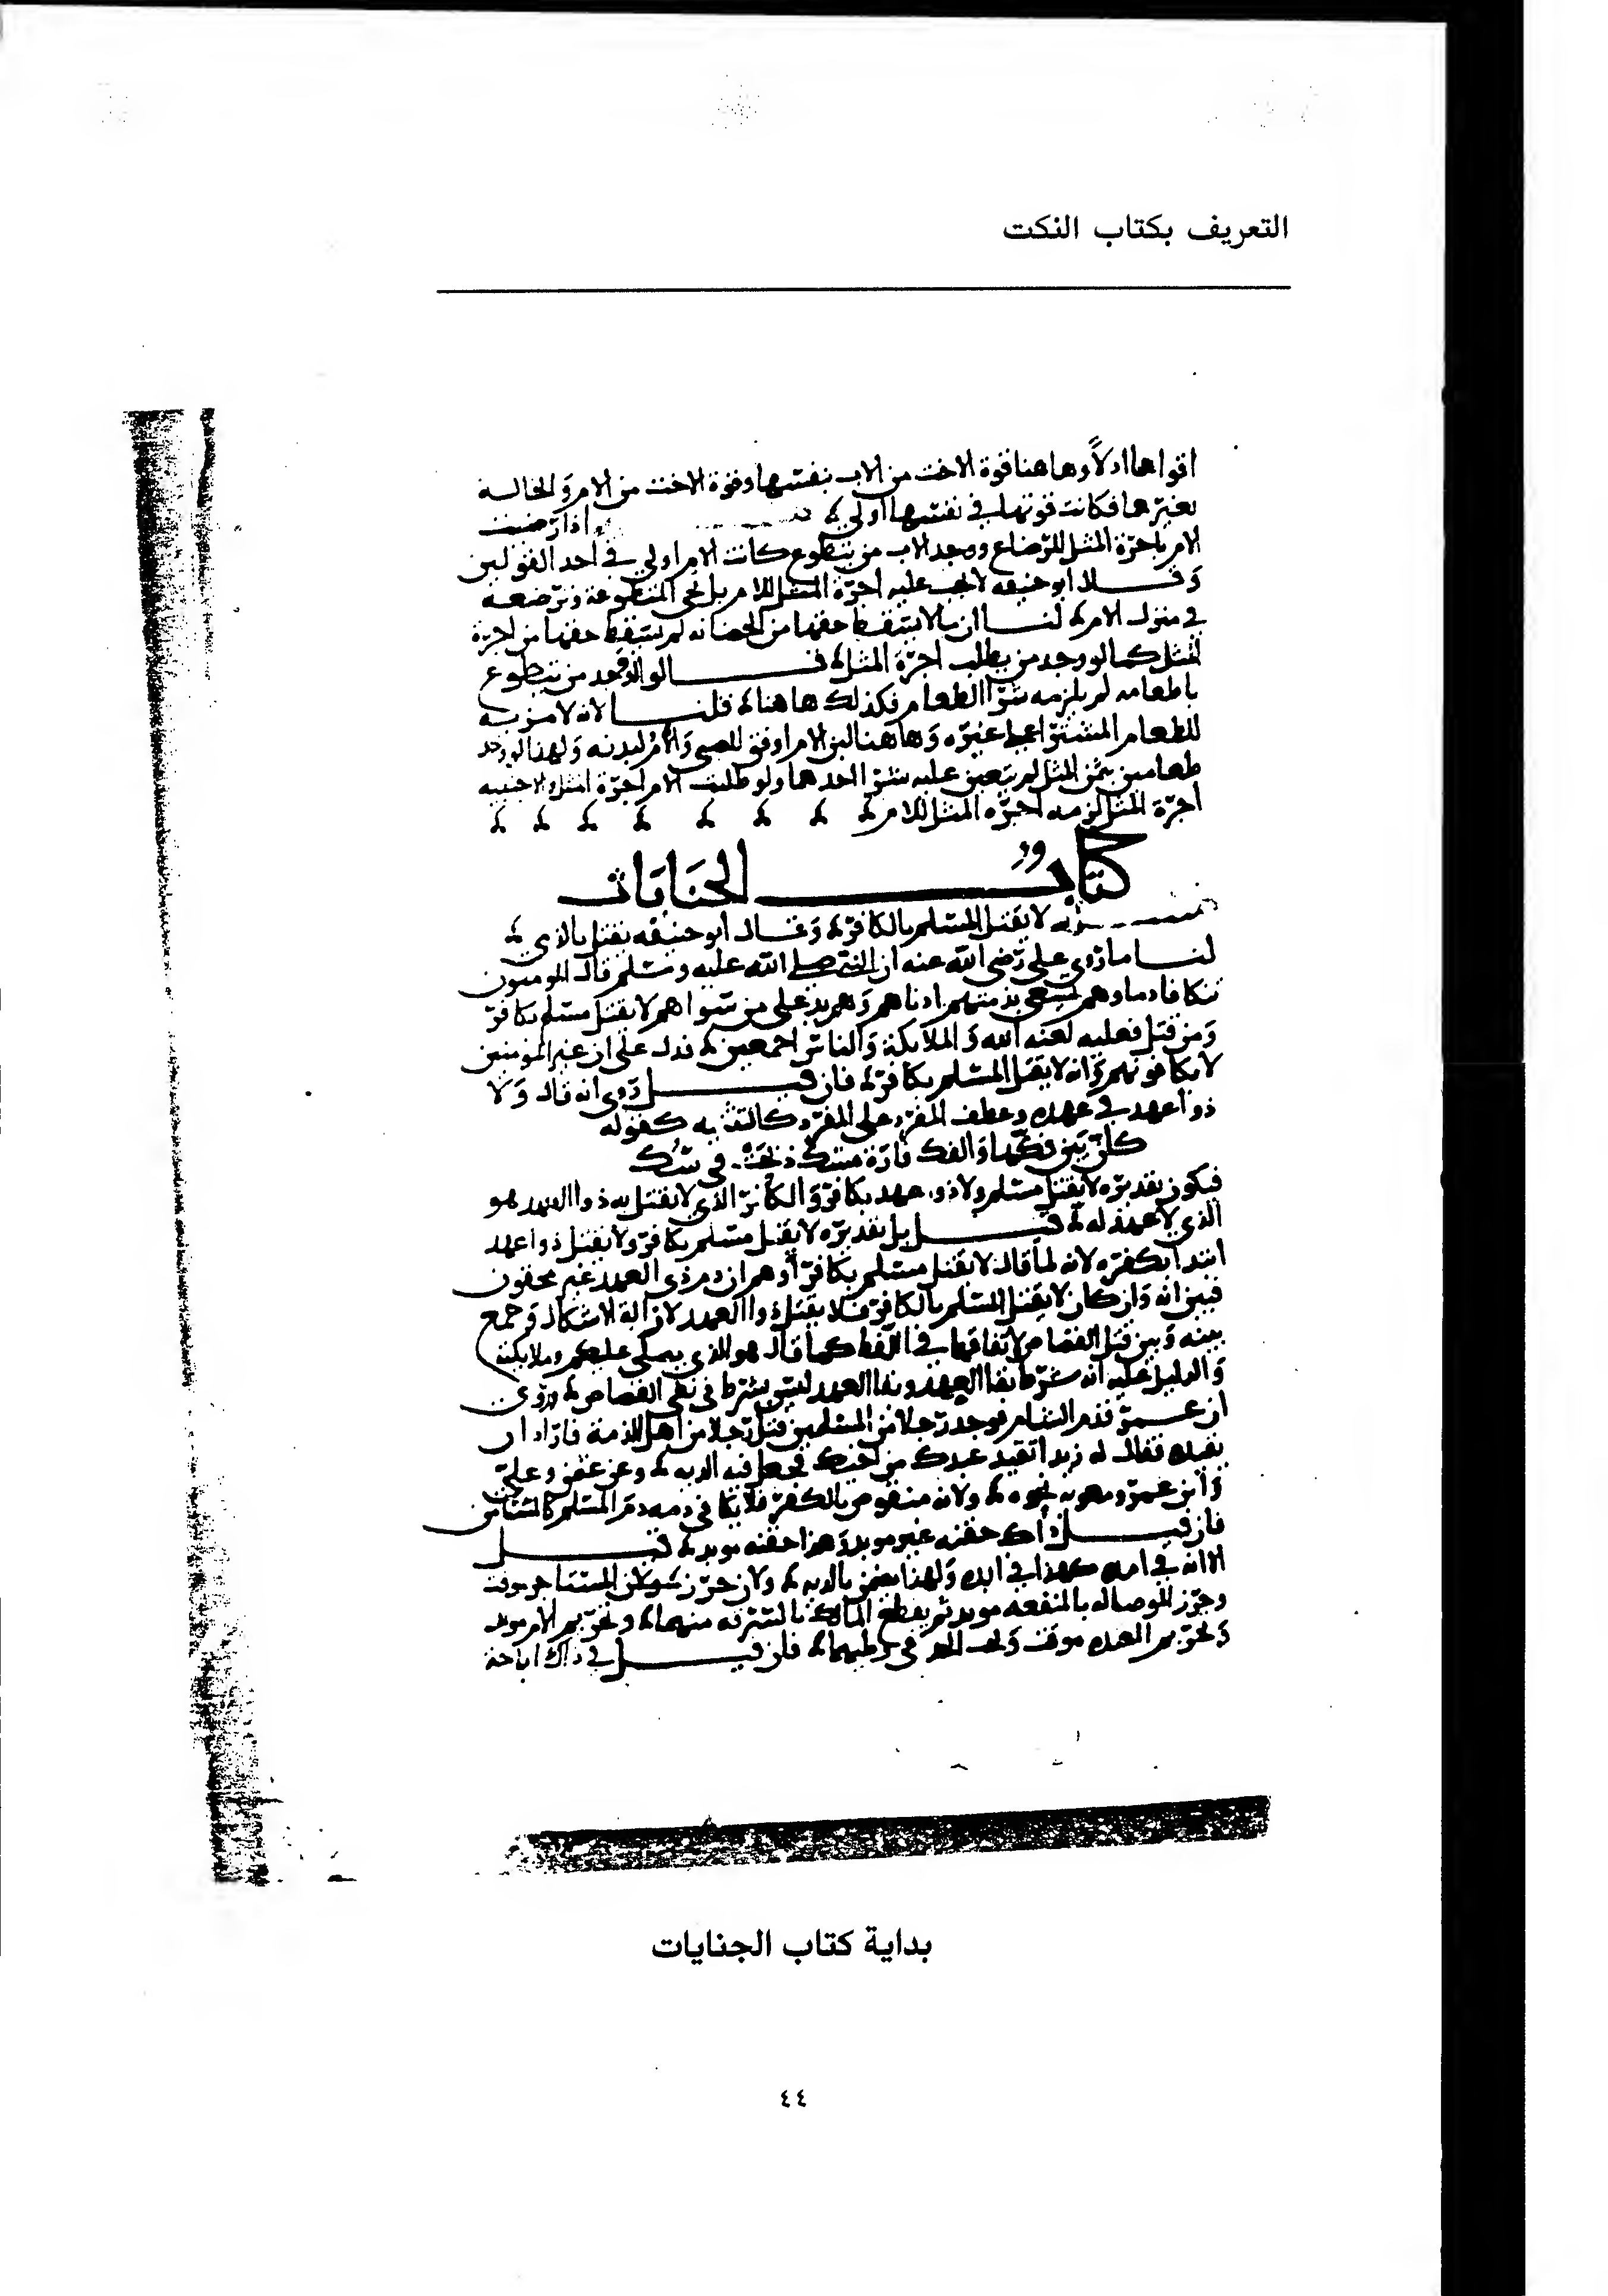 التعريف بكتاب النكت
اقواهما اولاً وهاهنا قوة الاخت من الاب بنفسها وقوة الاخت من الام والخالة
بغيرها فكانت قوتها في نفسها اولى اذا رضيت
الام باجرة المثل للرضاع ووجد الاب من يتطوع كانت الام اولى في احد القولين
وقال ابو حنيفه لا يجب عليه اجرة المثل للام بل تجي المتطوعة وترضعه
في منزل الام لنا ان ما لا يسقط حقها من الحضانه لم يسقط حقها من اجرة
المثل كما لو وجد من يطلب اجرة المثل قالوا لو وجد من يتطوع
باطعامه لم يلزمه شرا الطعام فكذلك هاهنا قلنا لانه لا مزيه
للطعام المشترا على غيره وهاهنا لبن الام اوفق للصبي ولهذا لو وجد
طعامين بثمن المثل لم يتعين عليه شرا احدهما ولو طلبت الام اجرة المثل والاجنبيه
اجرة المثل لزمه اجره المثل للام
كتاب الجنايات
لا يقتل المسلم بالكافر وقال ابو حنيفه يقتل بالذمي
لنا ما روي علي رضي الله عنه ان النبي صلى الله عليه وسلم قال المومنون
تتكافا دماوهم يسعى بذمتهم ادناهم وهم يد على من سواهم لا يقتل مسلم بكافر
ومن قتل فعليه لعنه الله والملايكة والناس اجمعين فدل على ان غير المؤمنين
لا يكافونهم وانه لا يقتل المسلم بكافر فان قيل روى انه قال ولا
ذو عهد في عهده وعطف المفرد على المفرد كالتثنيه كقوله
كان بين فكها والفك فارة مسك ذبحت في سك
فيكون تقديره لا يقتل مسلم ولا ذو عهد بكافر والكافر الذي لا يقتل به ذوا العهد هو
الذي لا عهد له قيل بل تقديره لا يقتل مسلم بكافر ولا يقتل ذوا عهد
ابتدا بكفره لانه لما قال لا يقتل مسلم بكافر اوهم ان دم ذي العهد غير محقون
فبين انه وان كان لا يقتل المسلم بالكافر فلا يقتل ذوا العهد لازالة الاشكال وجمع
بينه وبين قتل القصاص لاتفاقهما في اللفظ كما قال هو الذي يصلي عليكم وملايكته
والدليل عليه انه شرط بقا العهد وبقا العهد ليس بشرط في نفي القصاص وروى
ان عمر قدم الشام فوجد رجلا من المسلمين قتل رجلا من اهل الذمة فاراد ان
يقيده فقال له زيد اتقيد عبدك من اخيك فجعل فيه الديه وعن عثمن وعلي
وابن عمر ومعويه نحوه ولانه منقوص بالكفر فلا يكافى دمه دم المسلم كالمستامن
فان قيل ذاك حقنه غير موبد وهذا حقنه موبد قيل
الا انه في امده كهذا في ابده ولهذا يضمن بالديه
بالمنفعه موبد ثم يقطع المالك بالسرقه منهما وتحريم الام موبد
وتحريم المعده موقت ويجب الحد في وطيهما فان قيل في ذاك اباحة
بداية كتاب الجنايات
٤٤